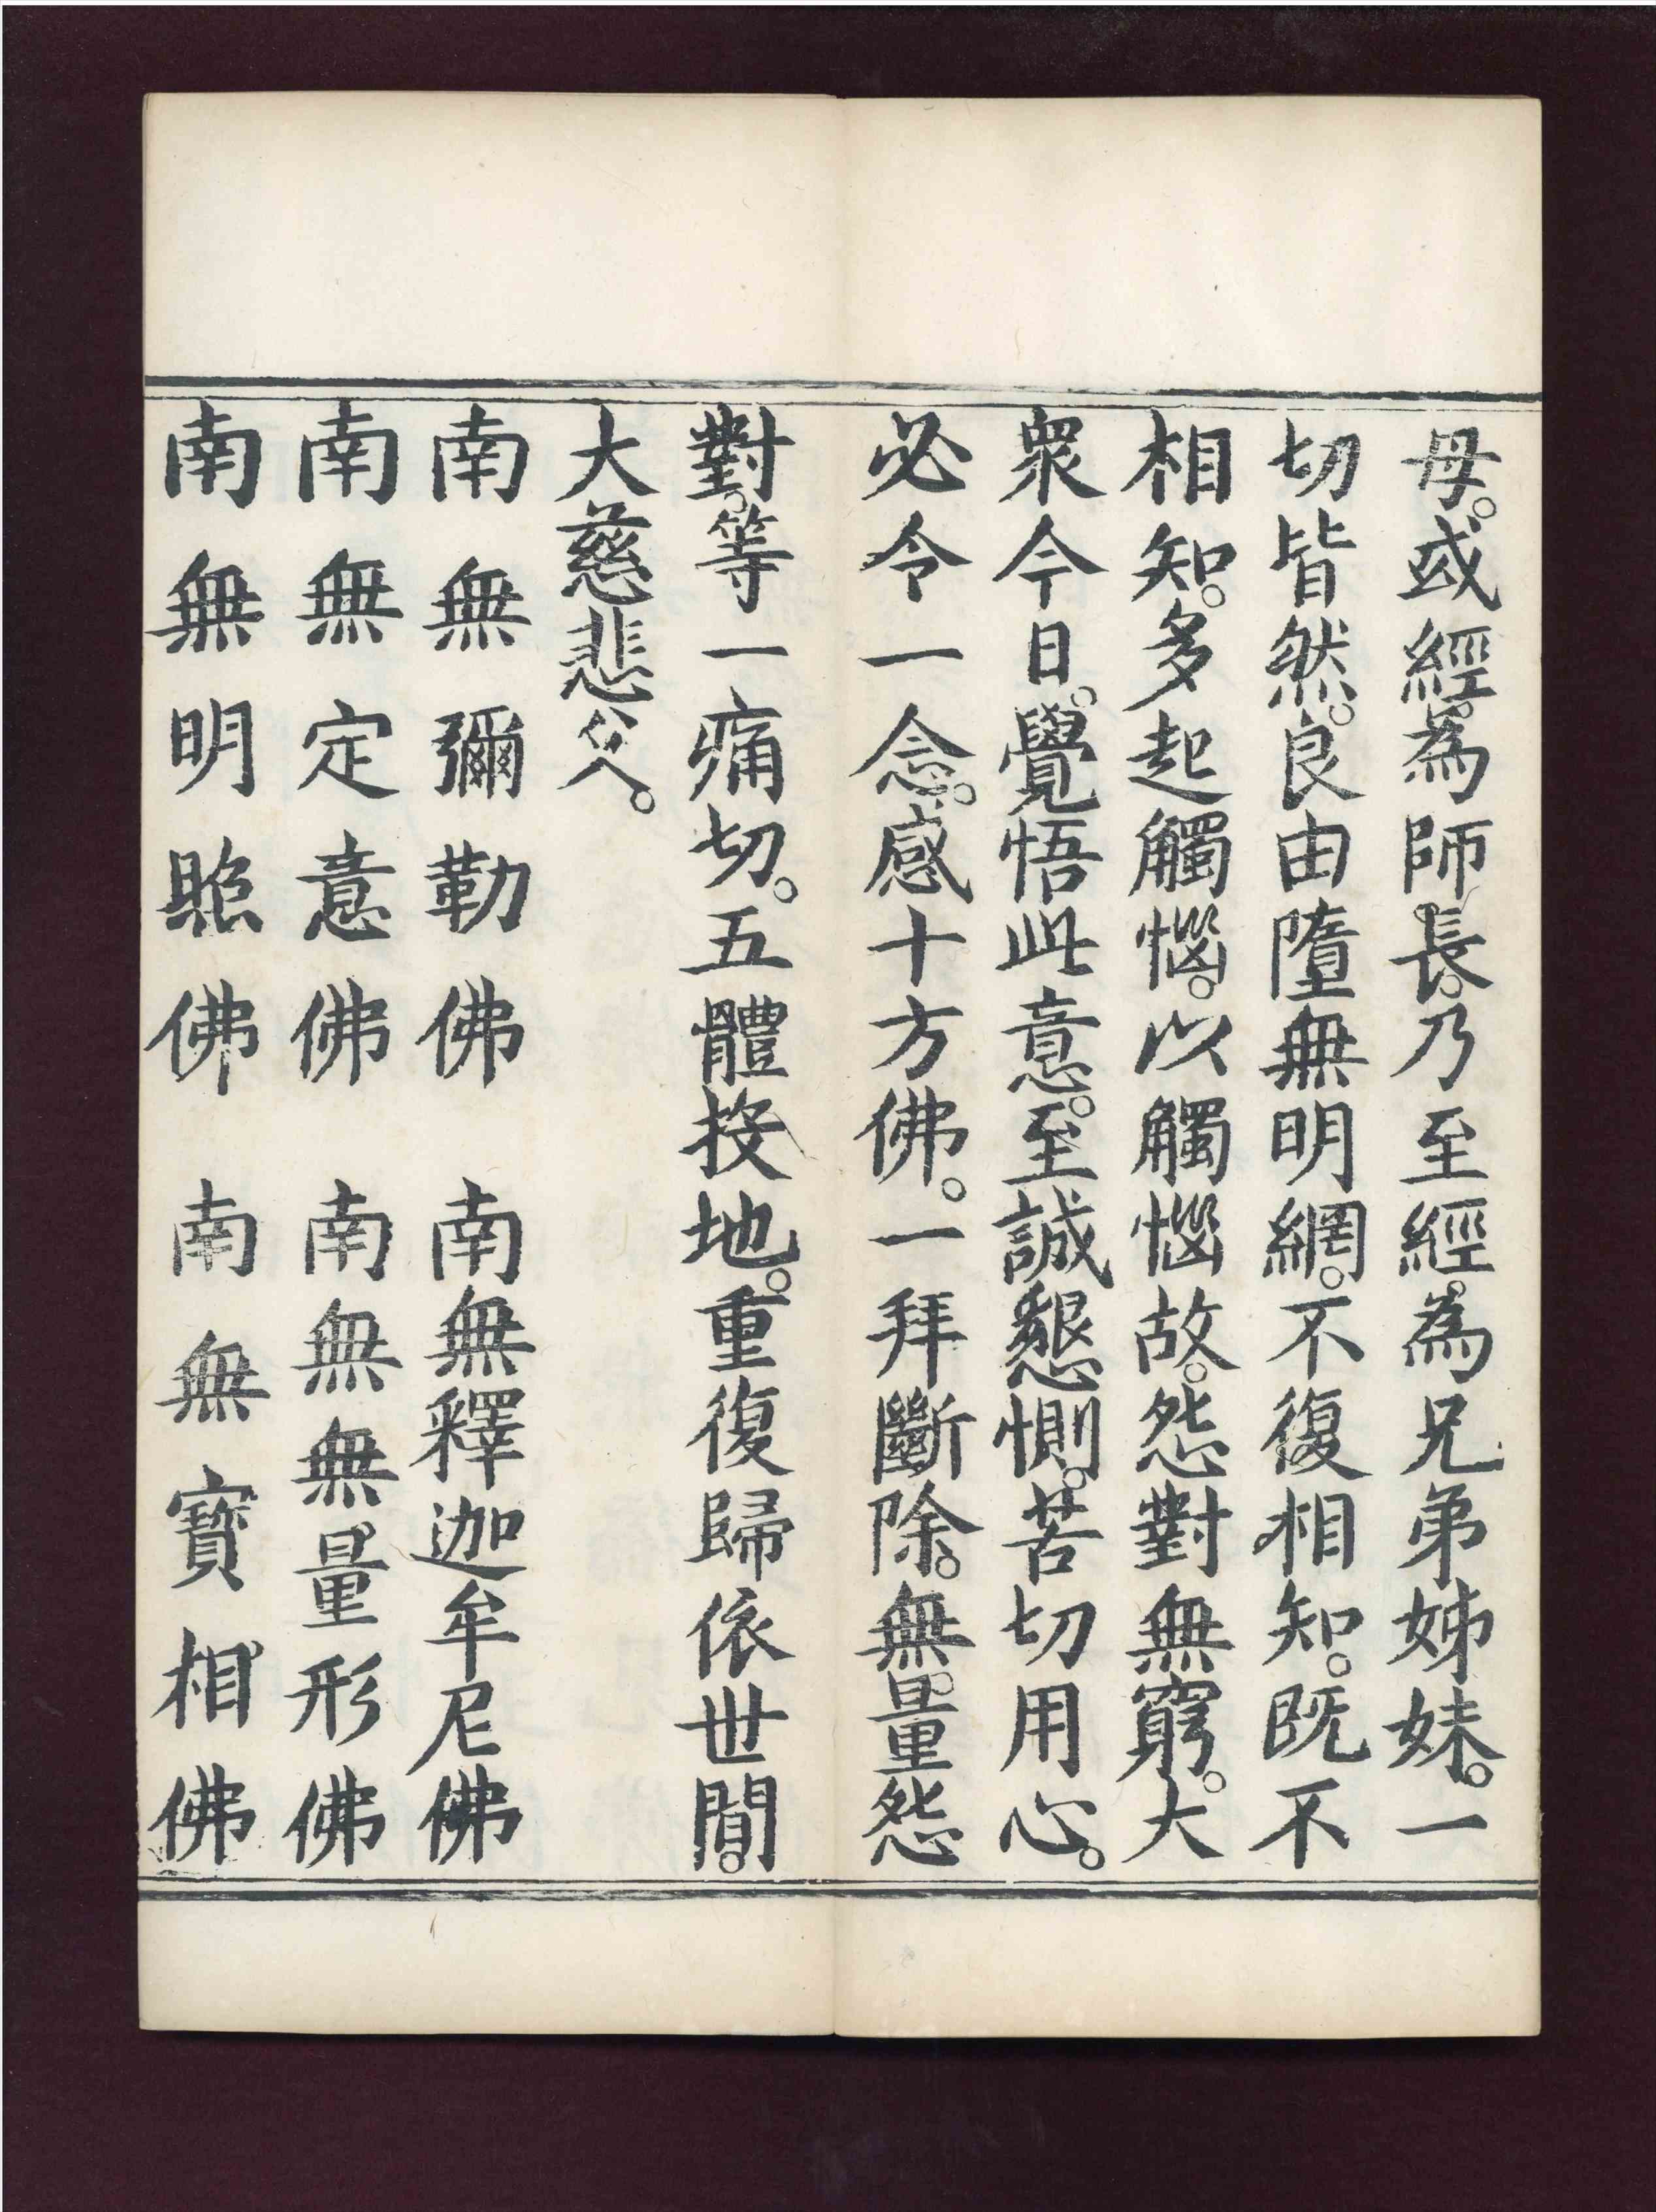 母。或經。為師長。乃至經。為兄弟姊妹。一
切皆然。良由墮無明網。不復相知。既不
相知。多起觸惱。以觸惱故。怨對無窮。大
衆今日。覺悟此意。至誠懇惻。苦切用心。
必令一念。感十方佛。一拜斷除。無量怨
對。等一痛切。五體投地。重復歸依世間。
大慈悲父。
南無彌勒佛　南無釋迦牟尼佛
南無定意佛　南無無量形佛
南無明照佛　南無寶相佛